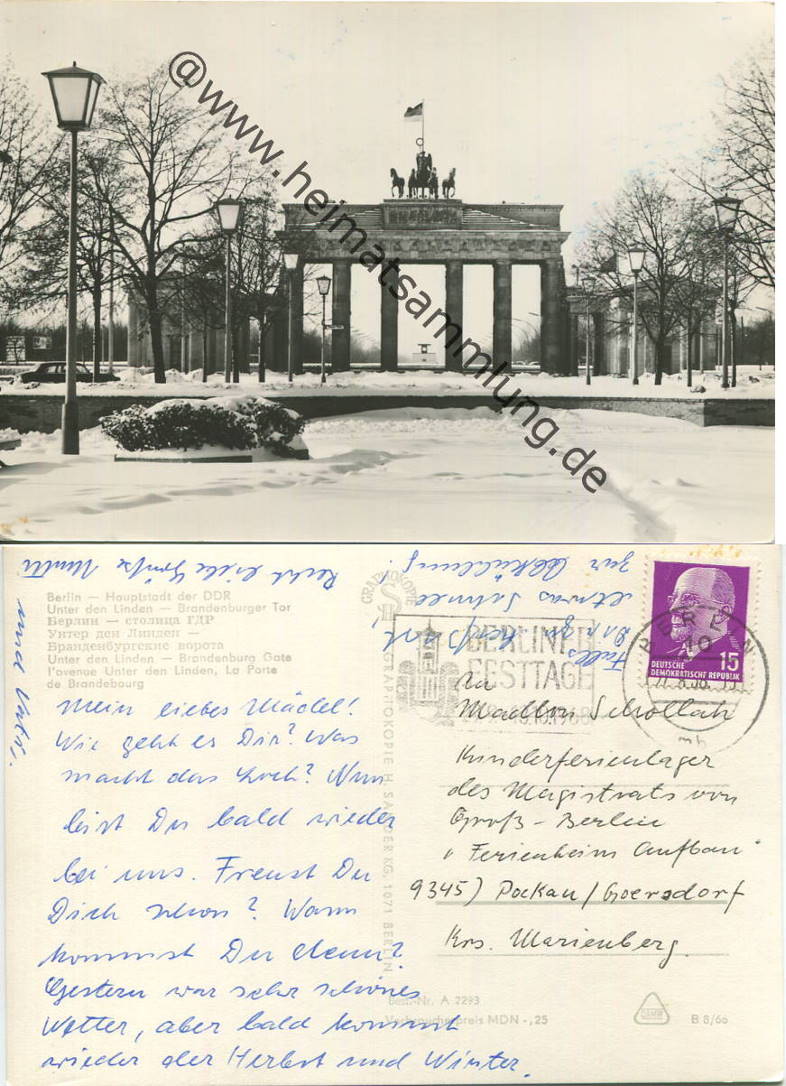 @www.heimatsammlung.de
Berlin — Hauptstadt der DDR
Unter den Linden — Brandenburger Tor
Берлин — столица ГДР
Унтер ден Линден —
Бранденбургские ворота
Unter den Linden — Brandenburg Gate
l'avenue Unter den Linden, La Porte
de Brandebourg
Mein liebes Mädel!
Wie geht es Dir? Was
macht das Loch? Nun
bist Du bald wieder
bei uns. Freust Du
Dich schon? Wann
kommst Du denn?
Gestern war sehr schönes
Wetter, aber bald kommt
wieder der Herbst und Winter.
Recht liebe Grüße Mutti
und Vati.
Falls
etwas Schnee
zur Abkühlung
BERLINER
FESTTAGE
BERLIN
DEUTSCHE
DEMOKRATISCHE REPUBLIK
15
An
Kinderferienlager
des Magistrats von
Groß-Berlin
"Ferienheim Aufbau"
9345) Pockau/Goersdorf
Krs. Marienberg.
GRAPHOKOPIE H. SANDER KG, 1071 BERLIN
Best.-Nr. A 2293
Verbraucherpreis MDN -,25
B 8/66